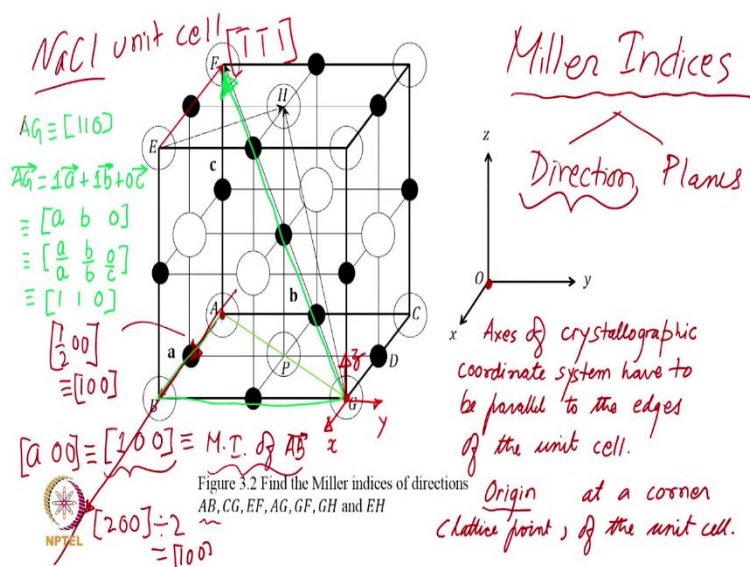 NaCl unit cell
[1̄ 1̄ 1]
Miller Indices
Direction, Planes
AG ≡ [110]
AG⃗ = 1a⃗ + 1b⃗ + 0c⃗
≡ [a b 0]
≡ [a/a b/b 0/c]
≡ [1 1 0]
[1/2 0 0]
≡ [100]
F
H
E
c
b
A
a
B
P
C
D
G
z
y
x
z
O
y
x
Axes of crystallographic
coordinate system have to
be parallel to the edges
of the unit cell.
Origin at a corner
(lattice point) of the unit cell.
[a 0 0] ≡ [1 0 0] ≡ M.I. of AB⃗
[200] ÷ 2
≡ [100]
Figure 3.2 Find the Miller indices of directions
AB, CG, EF, AG, GF, GH and EH
NPTEL